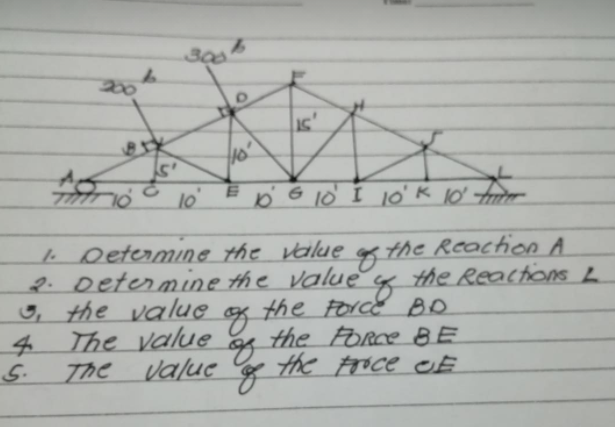 300 lb
200 lb
F
D
H
15'
B
J
10'
5'
A
C
E
G
I
K
L
10' 10' 10' 10' 10' 10'
1. Determine the value of the Reaction A
2. Determine the value of the Reactions L
3, the value of the Force BD
4 The value of the FORCE BE
5. The value of the Force CE